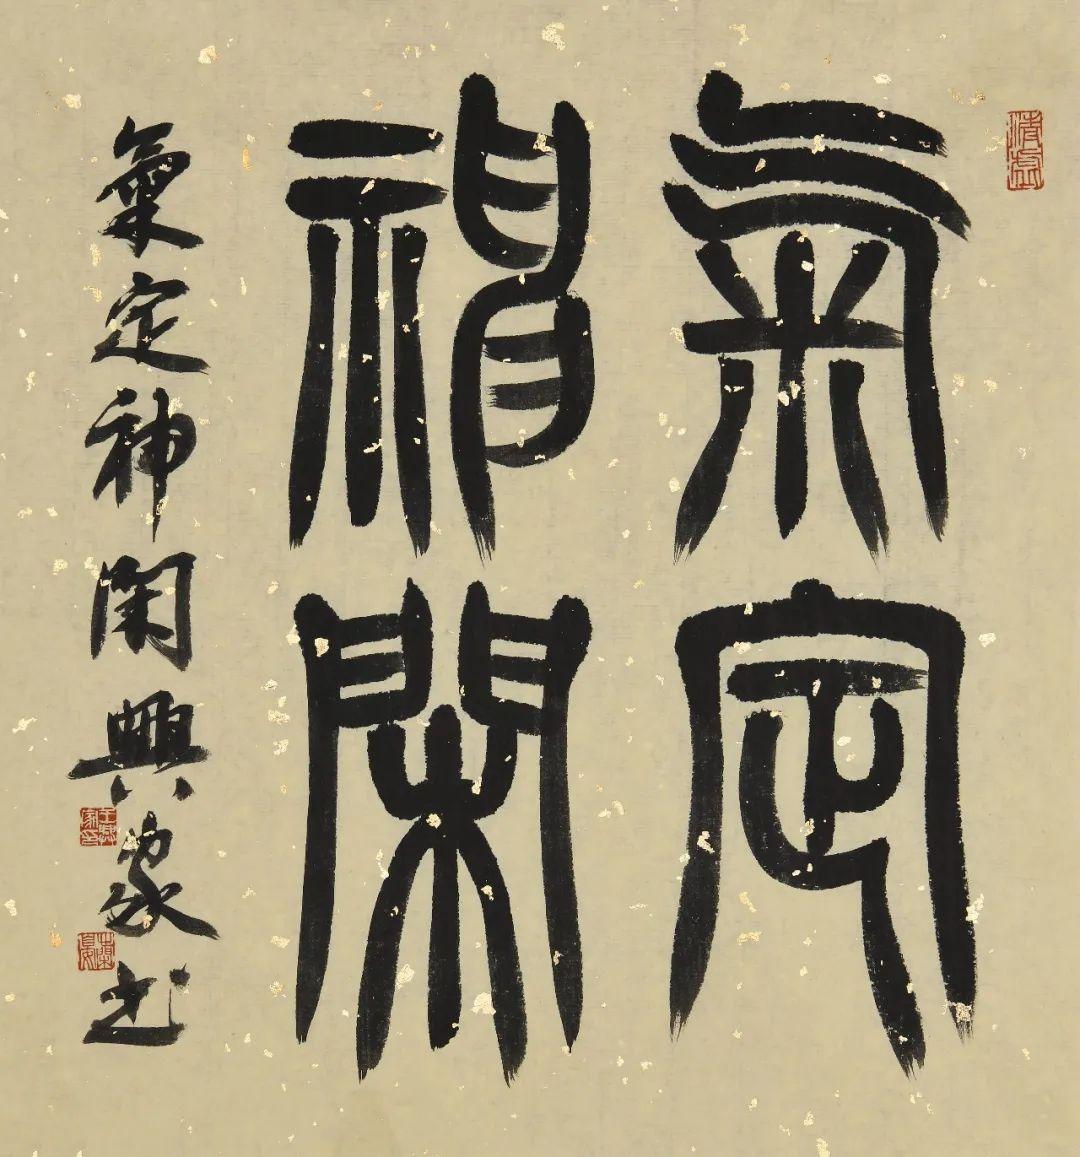 氣定
神閑
氣定神閑興家书